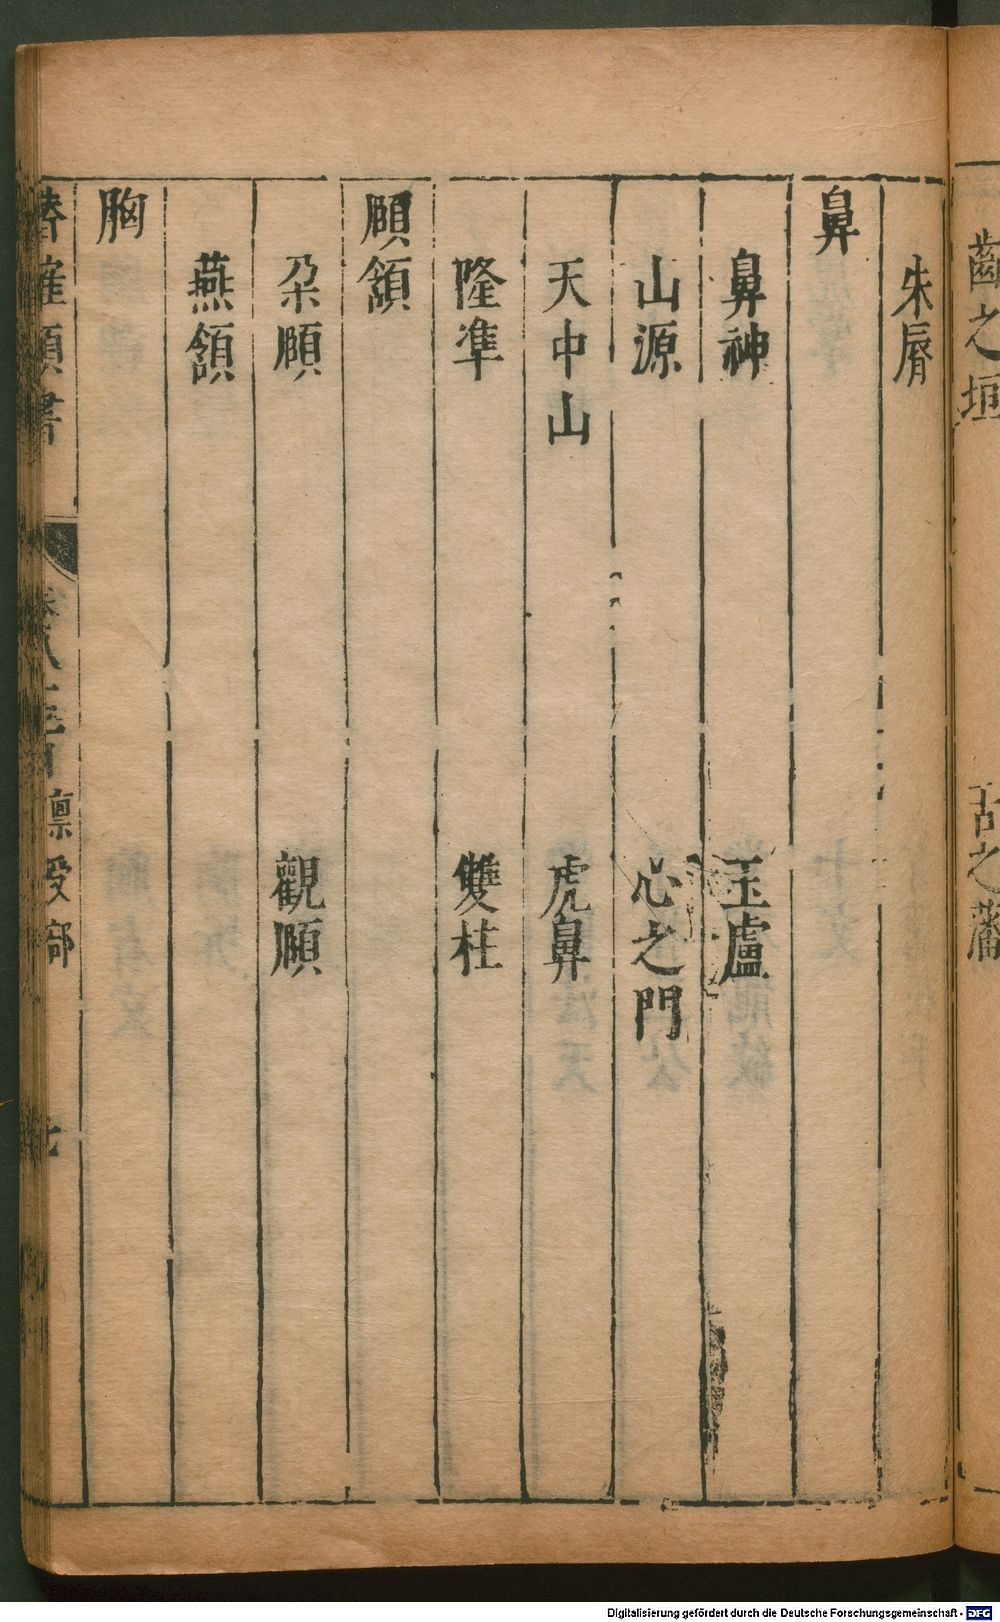 齒之垣　舌之藩
朱脣
鼻
鼻神　玉盧
山源　心之門
天中山　虎鼻
隆準　雙柱
頤頷
朶頤　觀頤
燕頷
胸
類書　卷八　稟受部　七
Digitalisierung gefördert durch die Deutsche Forschungsgemeinschaft - DFG